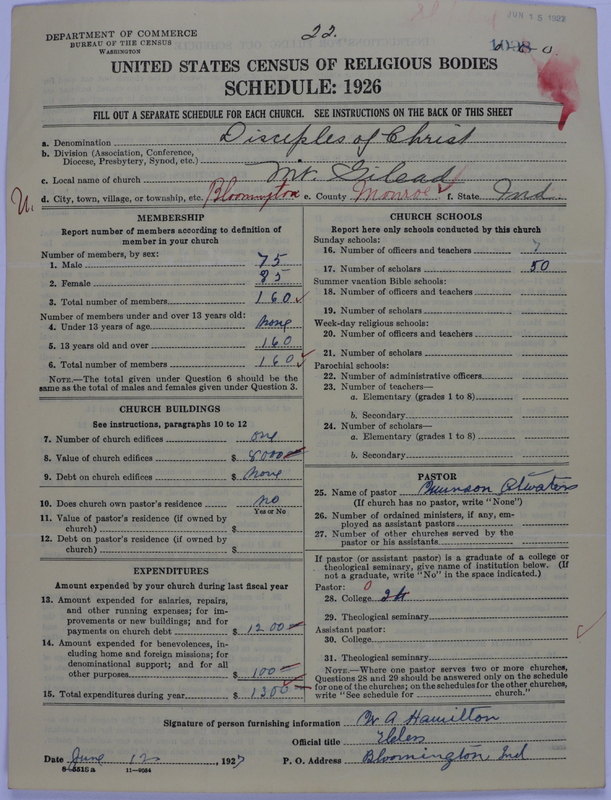 DEPARTMENT OF COMMERCE
BUREAU OF THE CENSUS
WASHINGTON
22.
JUN 15 1927
UNITED STATES CENSUS OF RELIGIOUS BODIES
SCHEDULE: 1926
FILL OUT A SEPARATE SCHEDULE FOR EACH CHURCH. SEE INSTRUCTIONS ON THE BACK OF THIS SHEET
a. Denomination Disciples of Christ
b. Division (Association, Conference,
Diocese, Presbytery, Synod, etc.)
c. Local name of church Mt. Gilead
d. City, town, village, or township, etc. Bloomington e. County Monroe f. State Ind
MEMBERSHIP
Report number of members according to definition of
member in your church
Number of members, by sex:
1. Male 75
2. Female 85
3. Total number of members 160
Number of members under and over 13 years old:
4. Under 13 years of age none
5. 13 years old and over 160
6. Total number of members 160
NOTE.—The total given under Question 6 should be the
same as the total of males and females given under Question 3.
CHURCH BUILDINGS
See instructions, paragraphs 10 to 12
7. Number of church edifices one
8. Value of church edifices $ 8000
9. Debt on church edifices $ none
10. Does church own pastor's residence no
Yes or No
11. Value of pastor's residence (if owned by
church) $
12. Debt on pastor's residence (if owned by
church) $
EXPENDITURES
Amount expended by your church during last fiscal year
13. Amount expended for salaries, repairs,
and other running expenses; for im-
provements or new buildings; and for
payments on church debt $ 1200
14. Amount expended for benevolences, in-
cluding home and foreign missions; for
denominational support; and for all
other purposes $ 100
15. Total expenditures during year $ 1300
CHURCH SCHOOLS
Report here only schools conducted by this church
Sunday schools:
16. Number of officers and teachers 7
17. Number of scholars 50
Summer vacation Bible schools:
18. Number of officers and teachers
19. Number of scholars
Week-day religious schools:
20. Number of officers and teachers
21. Number of scholars
Parochial schools:
22. Number of administrative officers
23. Number of teachers—
a. Elementary (grades 1 to 8)
b. Secondary
24. Number of scholars—
a. Elementary (grades 1 to 8)
b. Secondary
PASTOR
25. Name of pastor
(If church has no pastor, write "None")
26. Number of ordained ministers, if any, em-
ployed as assistant pastors
27. Number of other churches served by the
pastor or his assistants
If pastor (or assistant pastor) is a graduate of a college or
theological seminary, give name of institution below. (If
not a graduate, write "No" in the space indicated.)
Pastor: 0
28. College
29. Theological seminary
Assistant pastor:
30. College
31. Theological seminary
NOTE.—Where one pastor serves two or more churches,
Questions 28 and 29 should be answered only on the schedule
for one of the churches; on the schedules for the other churches,
write "See schedule for church."
Signature of person furnishing information W A Hamilton
Official title Elder
Date June 12 1927 P. O. Address Bloomington, Ind
11—9084